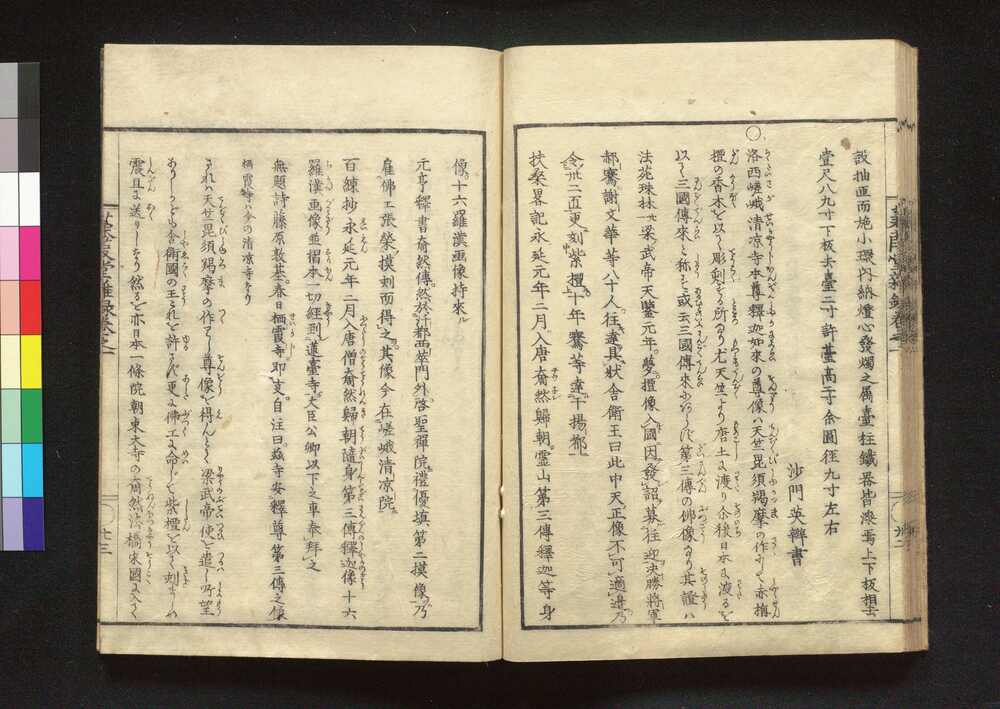 設抽匣而施小環內納燈心發燭之屬臺柱鐵器皆漆焉上下板相去
壹尺八九寸下板去臺二寸許臺高二寸余圓徑九寸左右
沙門英辯書
洛西嵯峨清凉寺本尊釋迦如來の尊像ハ天竺毘須羯摩の作にして赤栴
檀の香木を以て彫刻する所なり尤天竺より唐土に渡り今後日本に渡るを
以て三國傳來と称す或云三國傳來にあらず第三傳の佛像なり其證ハ
法苑珠林廿一梁武帝天鑒元年夢檀像入國因發詔募往迎決勝將軍
郝騫謝文華等八十人往達具狀舍衛王曰此中天正像不可適邊乃
令卅二匠更刻紫檀十年騫等達于揚都
扶桑畧記永延元年二月入唐奝然歸朝霊山第三傳釋迦等身
像十六羅漢画像持來
元亨釋書奝然傳然於汴都西華門外啓聖禪院禮優填第二摸像乃
雇佛工張榮摸刻而得之其像今在嵯峨清凉院
百練抄永延元年二月入唐僧奝然歸朝隨身第三傳釋迦像十六
羅漢画像並摺本一切經到蓮臺寺大臣公卿以下之車奉拜之
無題詩藤原敦基春日栖霞寺即支自注曰兹寺安釋尊第三傳之像
栖霞寺ハ今の清凉寺なり
されハ天竺毘須羯摩の作てし尊像を得んとて梁武帝使を造し所望
ありしかども舍衛國の王これを許さず更に佛工に命じて紫檀を以て刻ましめ
震旦に送りしなり然るを亦日本一條院朝東大寺の奝然法橋宋國に入て